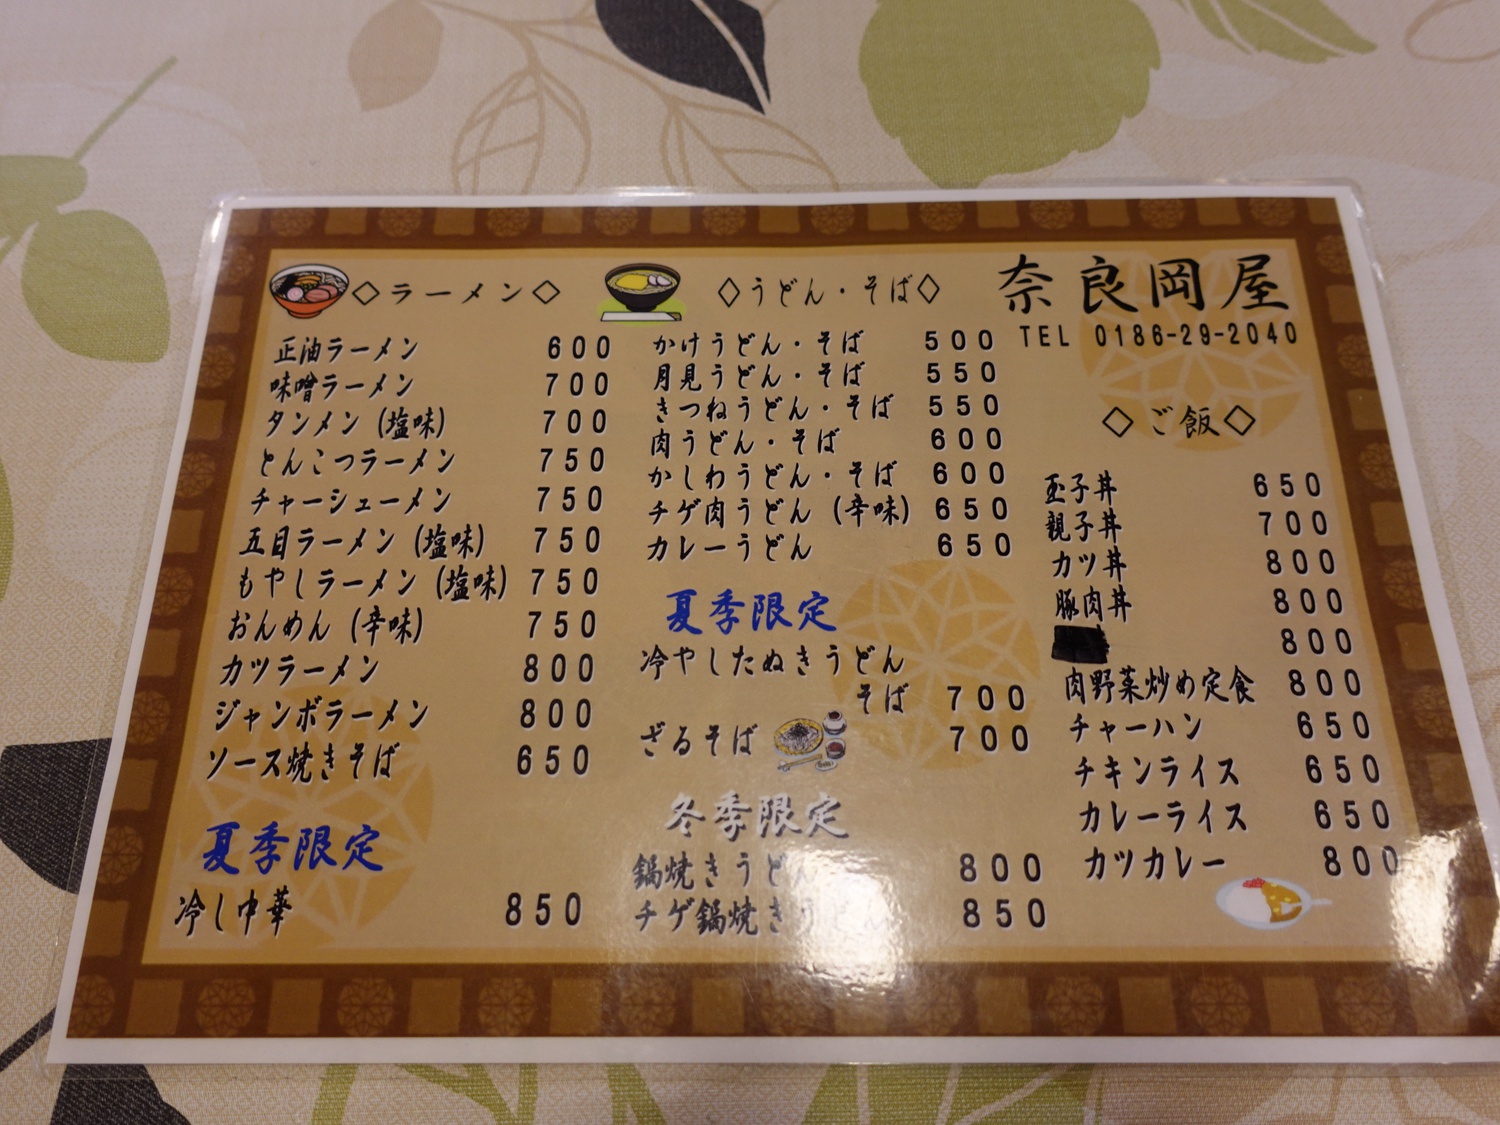 ◇ラーメン◇
正油ラーメン 600
味噌ラーメン 700
タンメン（塩味） 700
とんこつラーメン 750
チャーシューメン 750
五目ラーメン（塩味） 750
もやしラーメン（塩味） 750
おんめん（辛味） 750
カツラーメン 800
ジャンボラーメン 800
ソース焼きそば 650
夏季限定
冷し中華 850
◇うどん・そば◇
かけうどん・そば 500
月見うどん・そば 550
きつねうどん・そば 550
肉うどん・そば 600
かしわうどん・そば 600
チゲ肉うどん（辛味） 650
カレーうどん 650
夏季限定
冷やしたぬきうどん
そば 700
ざるそば 700
冬季限定
鍋焼きうどん 800
チゲ鍋焼きうどん 850
奈良岡屋
TEL 0186-29-2040
◇ご飯◇
玉子丼 650
親子丼 700
カツ丼 800
豚肉丼 800
800
肉野菜炒め定食 800
チャーハン 650
チキンライス 650
カレーライス 650
カツカレー 800